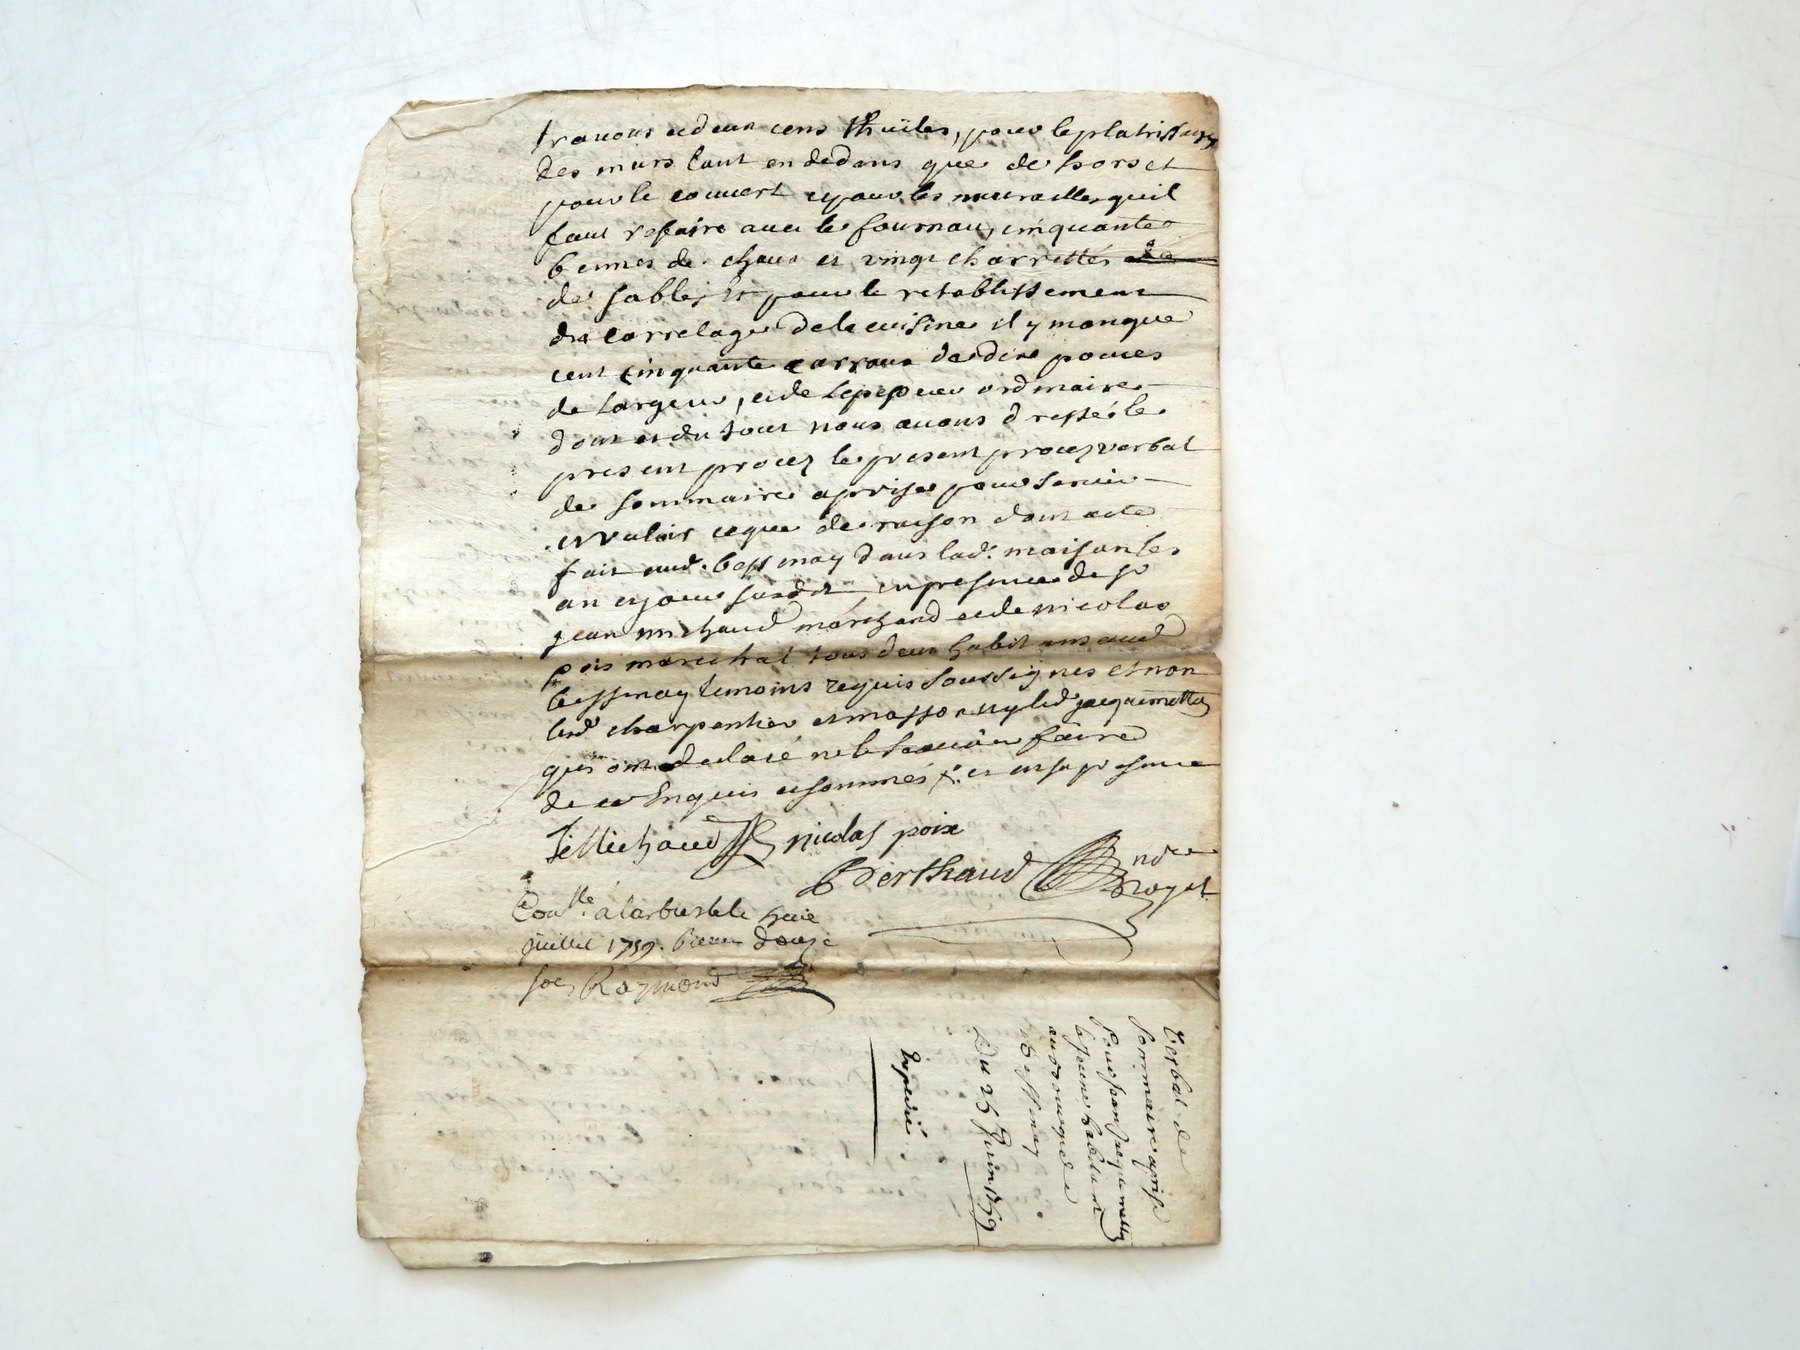 travons et deux cens thuiles, pour le platrissage
des murs tant en dedans que de hors et
pour le couvert et pour les murailles quil
faut refaire avec le fournau, cinquante
bennes de chaux et vingt charrettés de
de sable, Et pour le retablissement
du carrelage de la cuisine il y manque
cent cinquante carraux de dix pouces
de largeur, et de lepesseur ordinaire
dont et du tout nous avons dressé le
present procez le present procez verbal
de sommaire aprise pour servir
et valoir ce que de raison dont acte
fait aud. bessenay dans lad. maison les
an et jour susdit, en presence de sr
jean michaud marchand et de nicolas
pois marechal tous deux habitans aud
bessenay temoins requis soussignes et non
lesd charpentier et masson ny led jacquemetton
qui ont declaré ne le scavoir faire
de ce Enquis et sommés et en sa presence
Michaud nicolas poix
Berthaud
Conlle. a larbresle le huit
juillet 1759. Reçu douze
sols Raymond
Verbal de
sommaire aprise
Pour Jean Jacquemetton
aud
Bessenay
Du 25 Juin 1759
Expedié.